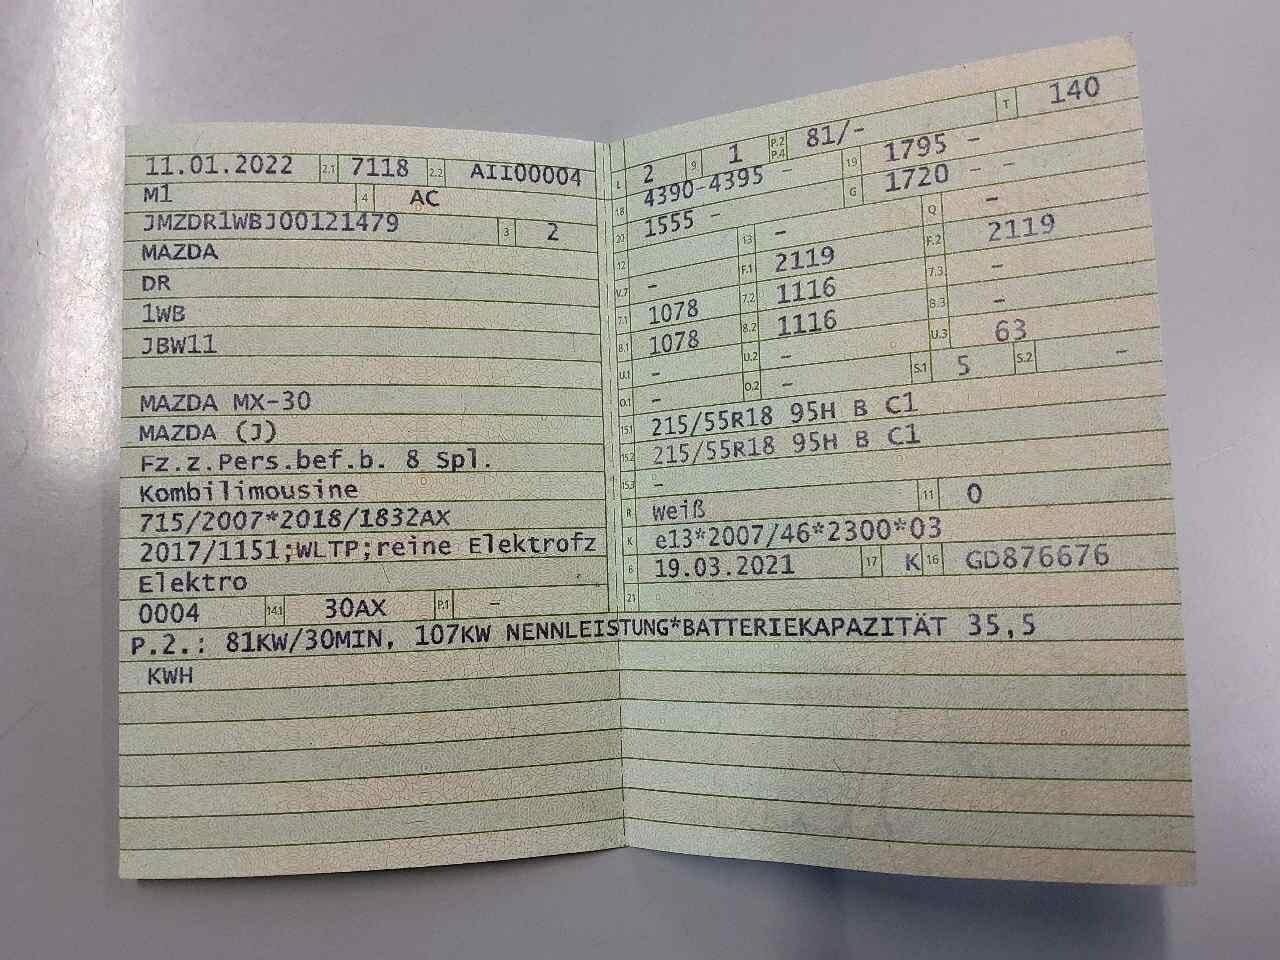 11.01.2022 2.1 7118 2.2 AII00004
M1 4 AC
JMZDR1WBJ00121479 3 2
MAZDA
DR
1WB
JBW11
MAZDA MX-30
MAZDA (J)
Fz.z.Pers.bef.b. 8 Spl.
Kombilimousine
715/2007*2018/1832AX
2017/1151;WLTP;reine Elektrofz
Elektro
0004 14.1 30AX P.1 -
L 2 9 1 P.2 P.4 81/- T 140
18 4390-4395 - 19 1795 -
20 1555 - G 1720 -
12 - 13 - Q -
V.7 - F.1 2119 F.2 2119
7.1 1078 7.2 1116 7.3 -
8.1 1078 8.2 1116 8.3 -
U.1 - U.2 - U.3 63
O.1 - O.2 - S.1 5 S.2 -
15.1 215/55R18 95H B C1
15.2 215/55R18 95H B C1
15.3 -
R weiß 11 0
K e13*2007/46*2300*03
6 19.03.2021 17 K 16 GD876676
21
P.2.: 81KW/30MIN, 107KW NENNLEISTUNG*BATTERIEKAPAZITÄT 35,5
KWH